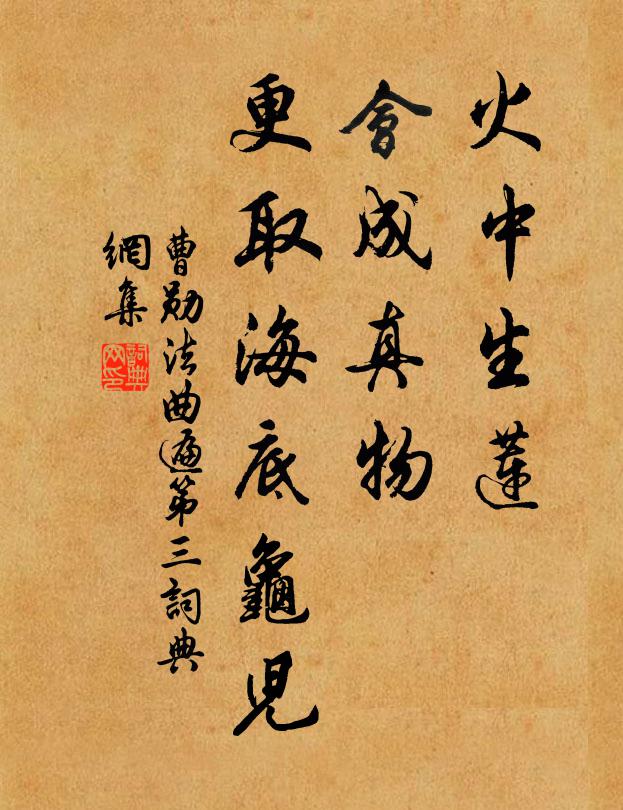 火中生蓮
會成真物
更取海底龜兒
曹勛法曲遍第三詞典
網集
詞典網印